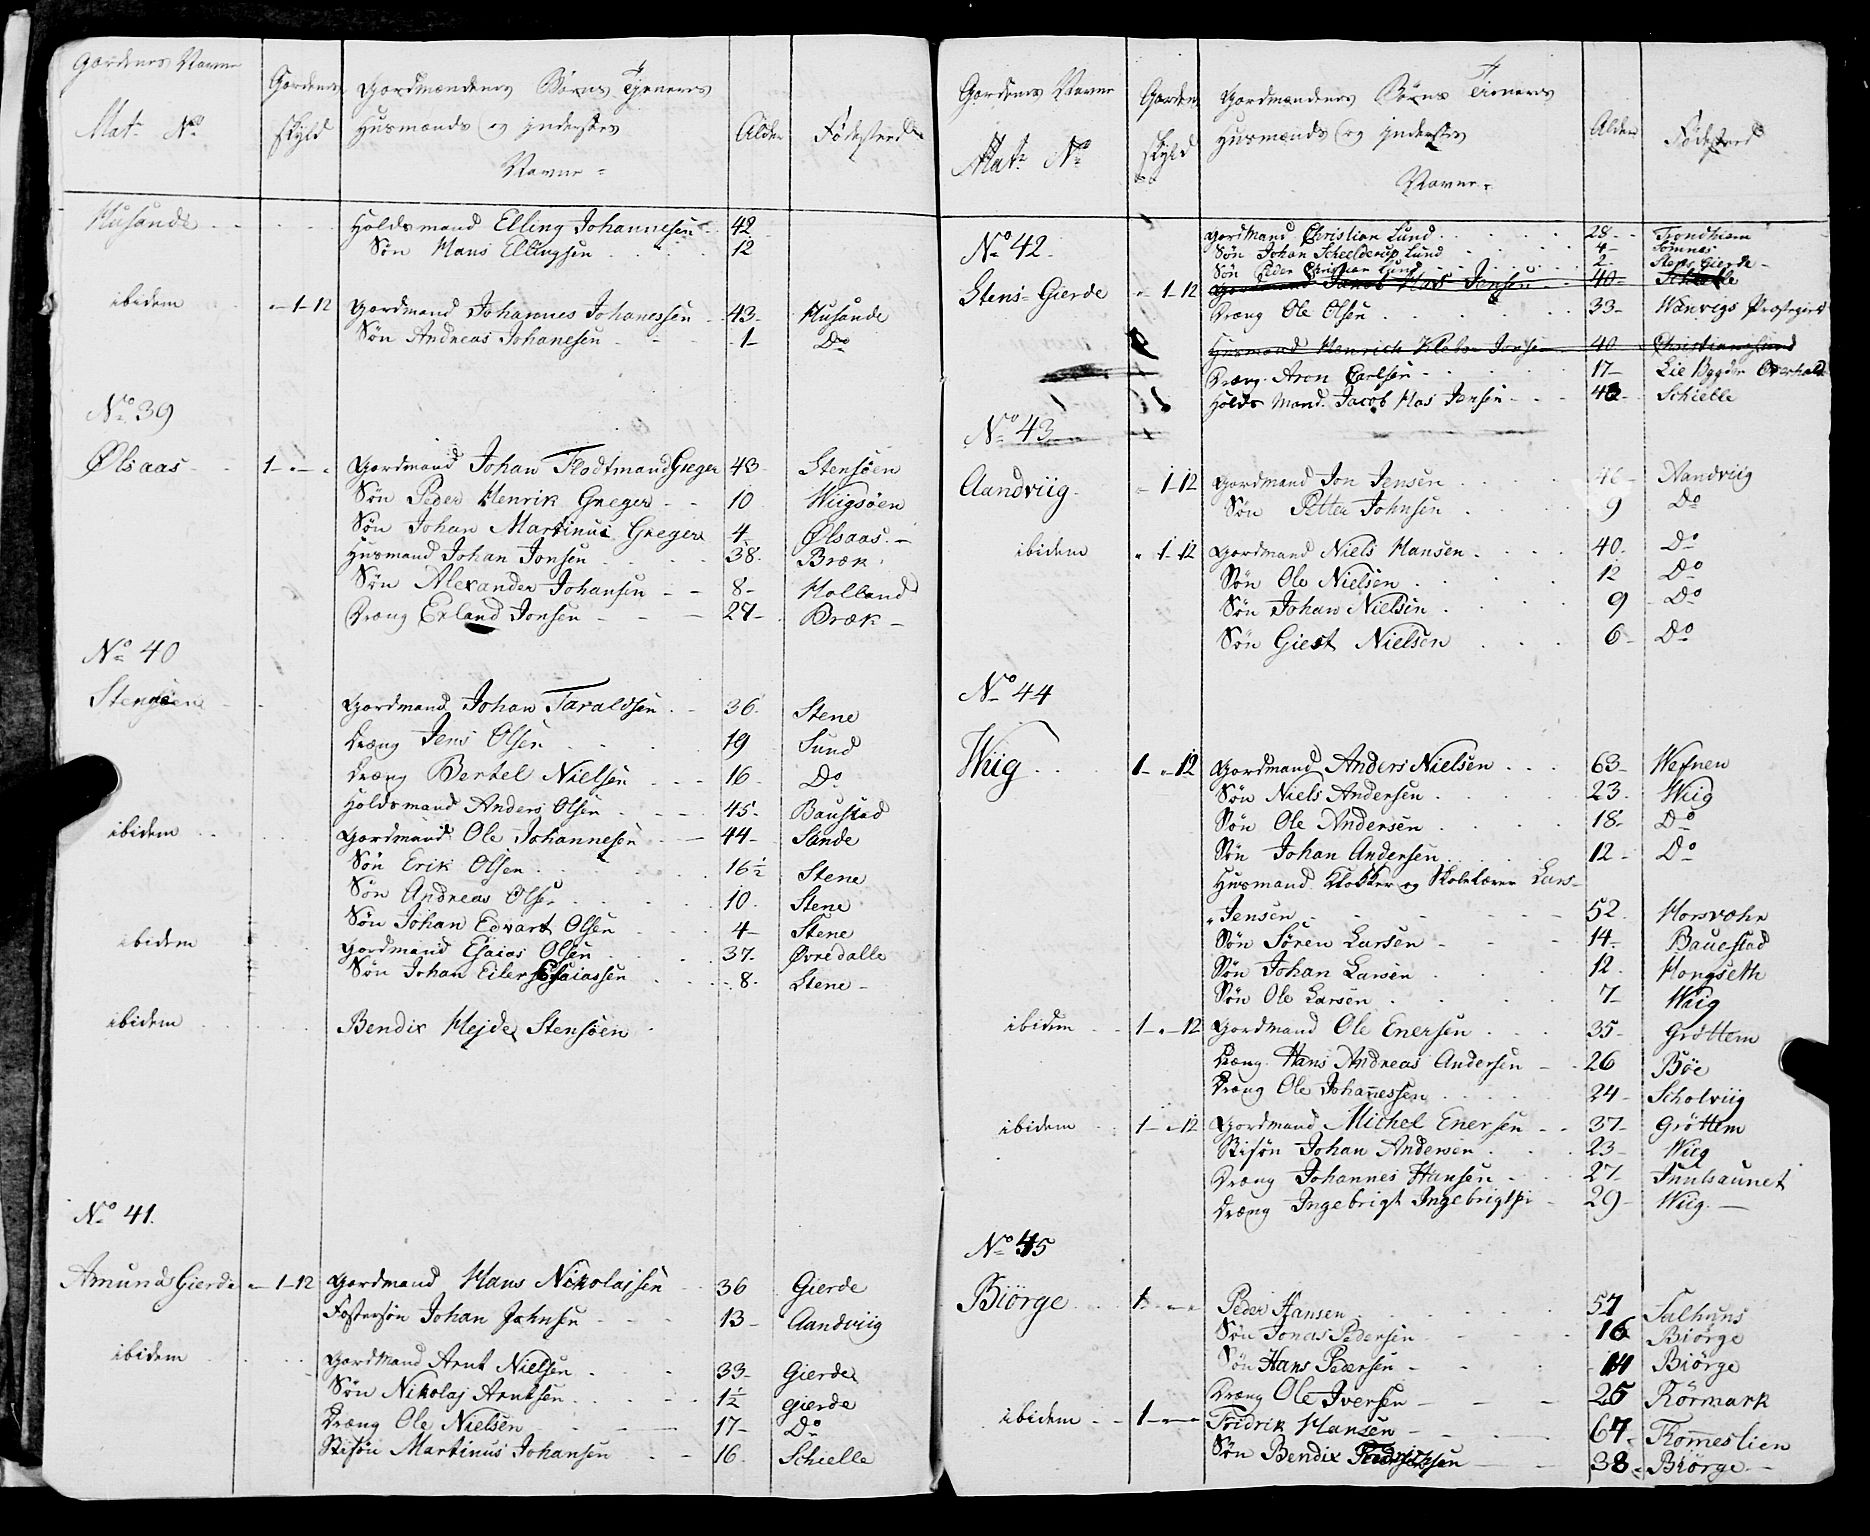 Gaardenes Navne
Mat. No
Gaardens
skyld
Gaardmændenes Børns Tjeneres
Husmænds og Inderstes
Navne
Alder
Fødested
Husande
Holdsmand Elling Johannesen 42
Søn Hans Ellingsen 12
ibidem - 1-12 Gaardmand Johannes Johanessen 43 Husande
Søn Andreas Johanesen 1 Do
No 39
Ølsaas 1 - - Gaardmand Johan Flodtmand Greger 43 Stensøen
Søn Peder Henrik Greger 10 Wiigsøen
Søn Johan Martinus Greger 4 Ølsaas
Husmand Johan Jonsen 38 Bræk
Søn Alexander Johansen 8 Holland
Dræng Erland Jonsen 27 Bræk
No 40
Stensøen Gaardmand Johan Taraldsen 36 Stene
Dræng Jens Olsen 19 Sund
Dræng Bertel Nielsen 16 Do
Holdsmand Anders Olsen 45 Baustad
ibidem Gaardmand Ole Johannesen 44 Sande
Søn Erik Olsen 16½ Stene
Søn Andreas Olse 10 Stene
Søn Johan Edvart Olsen 4 Stene
ibidem Gaardmand Esaias Olsen 37 Øvredalle
Søn Johan Eiler Esaiassen 8 Stene
ibidem Bendix Hejde Stensøen
No 41.
Amunds Gierde - 1-12 Gaardmand Hans Nikolajsen 36 Gierde
Fostersøn Johan Johnsen 13 Aandviig
ibidem Gaardmand Arnt Nielsen 33 Gierde
Søn Nikolaj Arntsen 1½ gierde
Dræng Ole Nielsen 17 Do
Stisøn Martinus Johansen 16 Schielle
Gaardenes Navne
Mat. No
Gaardens
skyld
Gaardmændenes Børns Tieneres
Husmænds og Inderstes
Navne
Alder
Fødested
No 42
Gaardmand Christian Lund 28 Trondhiem
Søn Johan Scheelderup Lund 4 Sømnæs
Søn Peder Christian Lund 2 Stens Gierde
Stens-Gierde - 1-12 Gaardmand Jacob Has Jensen 40 Schielle
Dræng Ole Olsen 33 Wænvigs Prestegield
Husmand Henrich Jensen 40 Christiansund
Dræng Aron Carlsen 17 Lie Bygden Overhald
Holds Mand Jacob Has Jensen 48 Schielle
No 43
Aandviig - 1-12 Gaardmand Jon Jensen 46 Aandviig
Søn Petter Johnsen 9 Do
ibidem - 1-12 Gaardmand Niels Hansen 40 Do
Søn Ole Nielsen 12 Do
Søn Johan Nielsen 9 Do
Søn Giert Nielsen 6 Do
No 44
Wiig 1 - 12 Gaardmand Anders Nielsen 63 Wefnen
Søn Niels Andersen 23 Wiig
Søn Ole Andersen 18 Do
Søn Johan Andersen 12 Do
Husmand Klokker og Skolelærer Lars
Jensen 52 Horsvohr
Søn Sören Larsen 14 Bauestad
Søn Johan Larsen 12 Hongseth
Søn Ole Larsen 7 Wiig
ibidem 1 - 12 Gaardmand Ole Enersen 35 Grøttem
Dræng Hans Andreas Andersen 26 Bøe
Dræng Ole Johannessen 24 Scholviig
ibidem 1 - 12 Gaardmand Michel Enersen 37 Grøttem
Stisøn Johan Andersen 23 Wiig
Dræng Johannes Hansen 27
Dræng Ingebrigt Ingebrigtsen 29 Wiig
No 45
Biörge 1 - - Peder Hansen 57
Søn Jonas Pedersen 16 Biörge
Søn Hans Pedersen 14 Biörge
Dræng Ole Iversen 25 Rörmark
ibidem 1 - - Fridrik Hansen 67 Trommeslien
Søn Bendix Fredriksen 38 Biörge